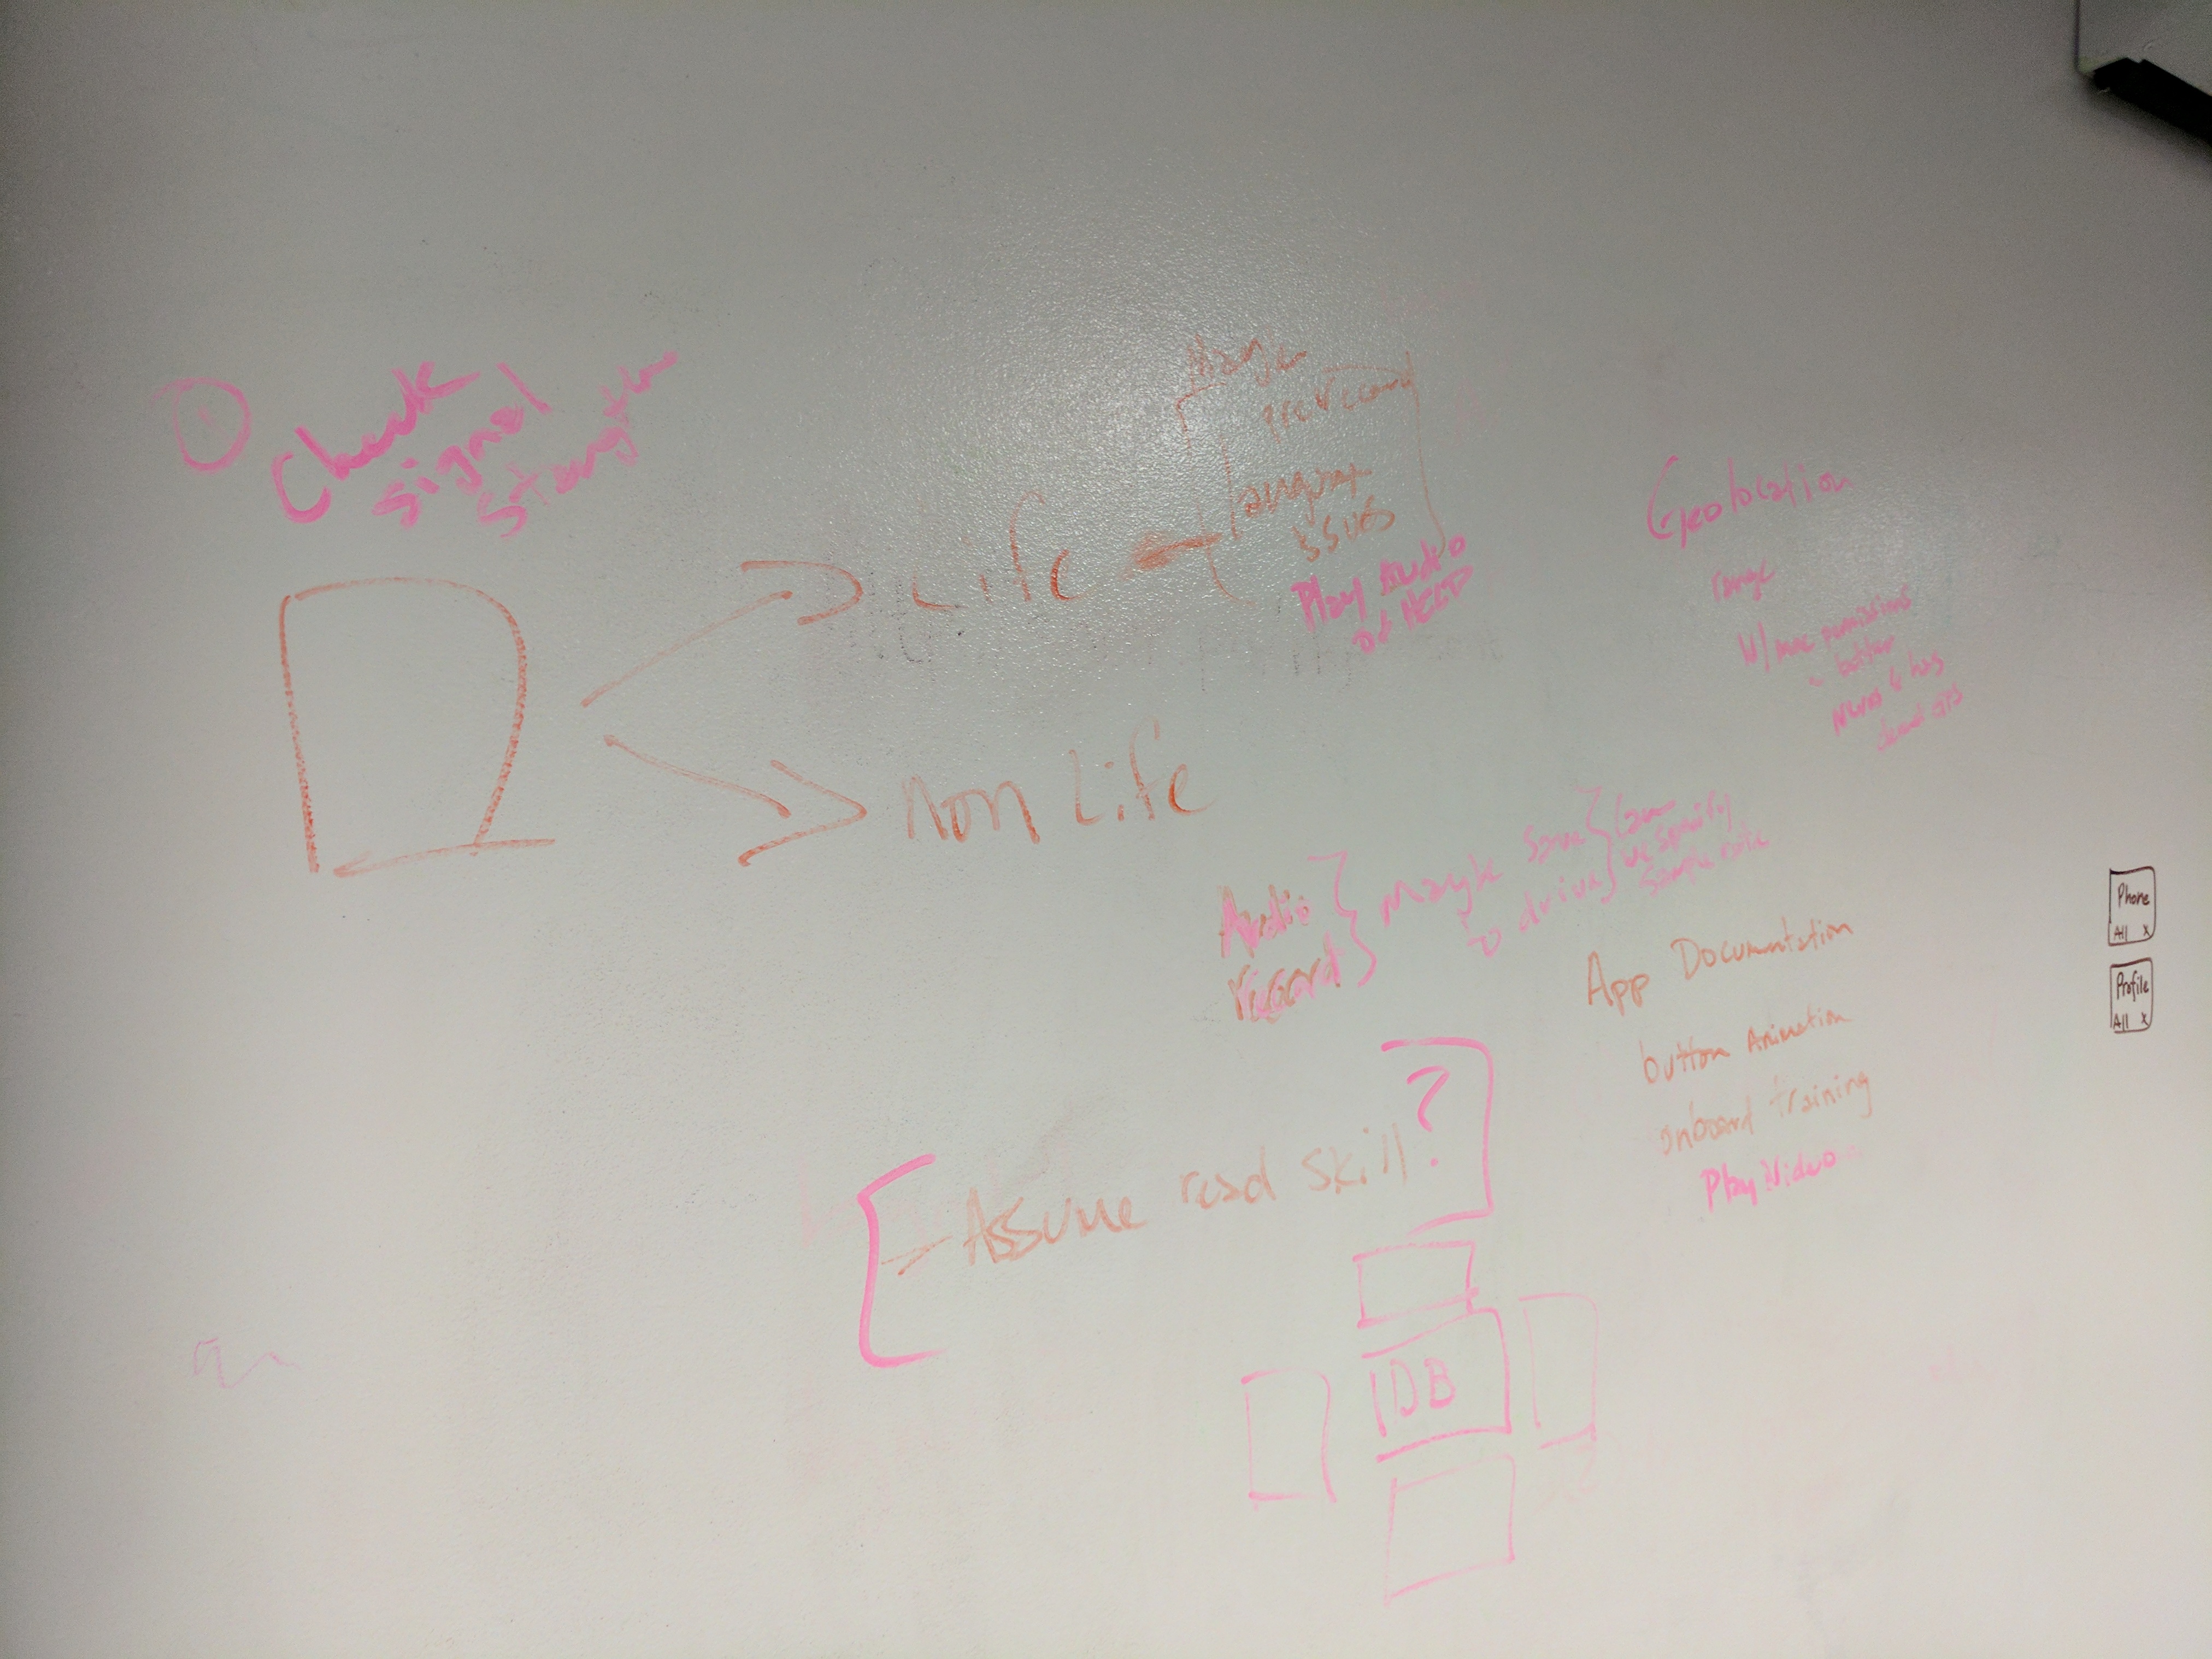 1
Check
signal
Strength
Life
record
language
issues
Play Audio
Non Life
Geolocation
range
W/ permissions
button
Audio
record
Maybe save
to drive
can
we specify
sample rate
App Documentation
button Animation
onboard training
Play Video
Assume read skill?
DB
Phone
All X
Profile
All X